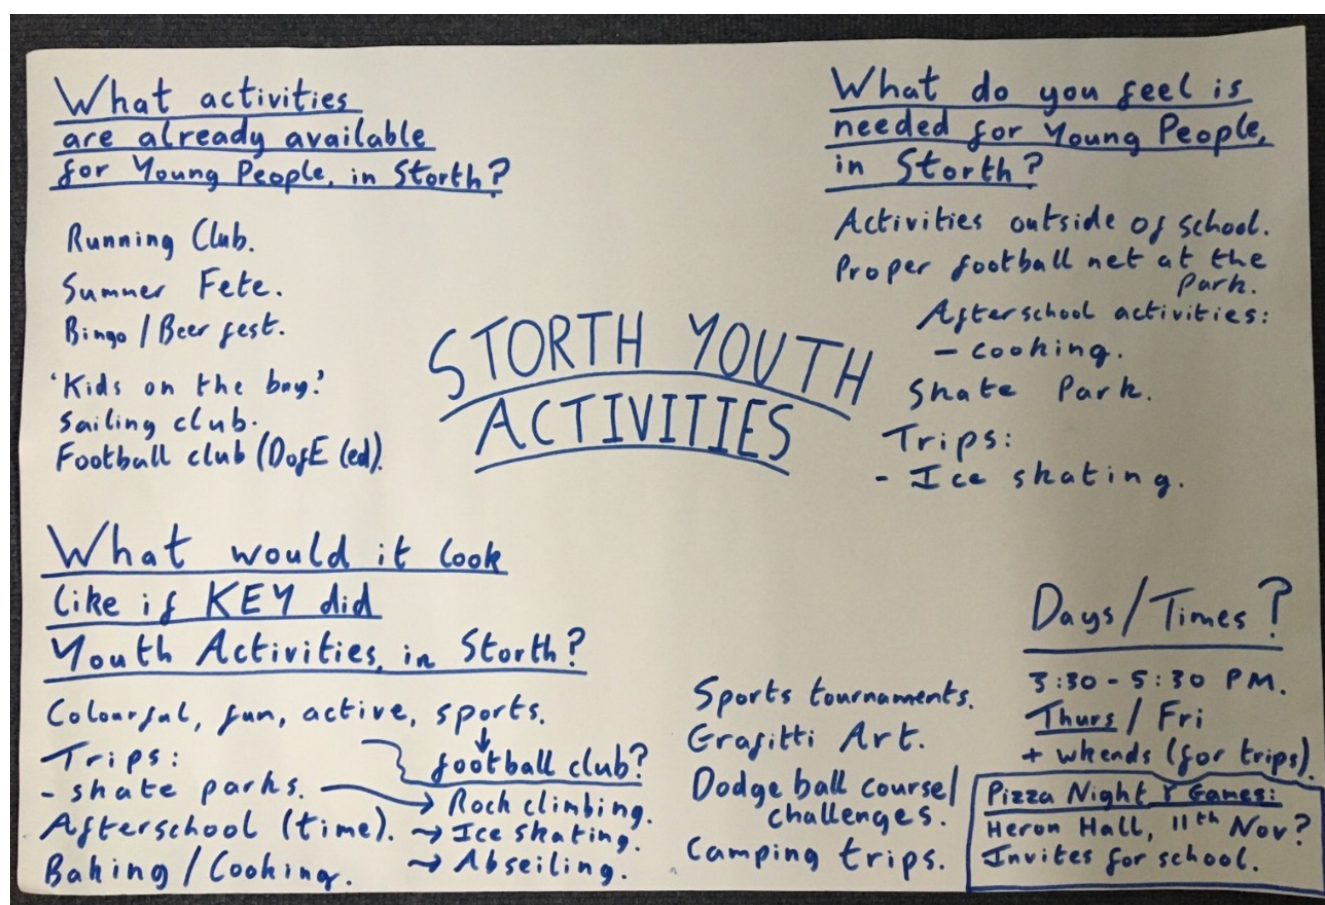 What activities
are already available
for Young People, in Storth?
Running Club.
Summer Fete.
Bingo / Beer fest.
'Kids on the bay.'
Sailing club.
Football club (DofE led).
STORTH YOUTH
ACTIVITIES
What do you feel is
needed for Young People,
in Storth?
Activities outside of school.
Proper football net at the
Park.
Afterschool activities:
- cooking.
Skate Park.
Trips:
- Ice skating.
What would it look
like if KEY did
Youth Activities, in Storth?
Colourful, fun, active, sports.
football club?
Trips:
- skate parks.
Rock climbing.
Afterschool (time).
Ice skating.
Baking / Cooking.
Abseiling.
Sports tournaments.
Grafitti Art.
Dodge ball course/
challenges.
Camping trips.
Days/Times?
3:30 - 5:30 PM.
Thurs / Fri
+ wkends (for trips).
Pizza Night & Games:
Heron Hall, 11th Nov?
Invites for school.